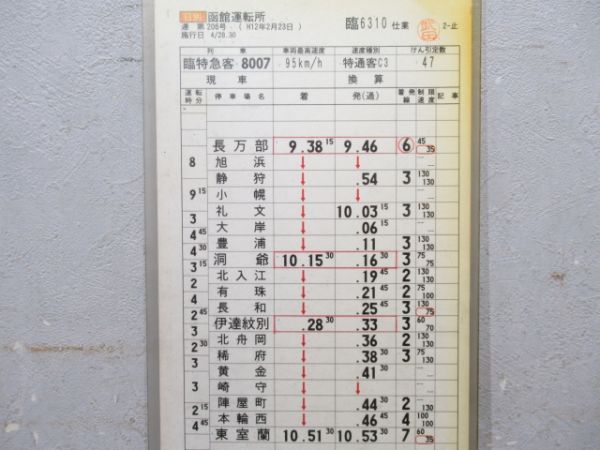 日別 函館運転所
運第206号 (H12年2月23日) 臨6310 仕業 2-止
施行日 4/28.30
列車 車両最高速度 速度種別 けん引定数
臨特急客 8007 95km/h 特通客C3 47
現車 換算
運転時分 停車場名 着 発(通) 着発線 制限速度 記事
長万部 9.38 15 9.46 6 45 35
8 旭浜 ↓ ↓
静狩 ↓ .54 3 130 130
9 15 小幌 ↓ ↓
礼文 ↓ 10.03 15 3 130 130
3 大岸 ↓ .06 15
4 45 豊浦 ↓ .11 3 130 130
4 30 洞爺 10.15 30 .16 30 3 75 75
3 15 北入江 ↓ .19 45 2 130 130
2 有珠 ↓ .21 45 2 75 100
4 長和 ↓ .25 45 3 130 75
2 45 伊達紋別 .28 30 .33 3 60 70
3 北舟岡 ↓ .36 2 130 130
2 30 稀府 ↓ .38 30 3 130 130
3 黄金 ↓ .41 30
3 崎守 ↓ ↓
陣屋町 ↓ .44 30 2 130
2 15 本輪西 ↓ .46 45 4 100 100
4 45 東室蘭 10.51 30 10.53 30 7 60 35